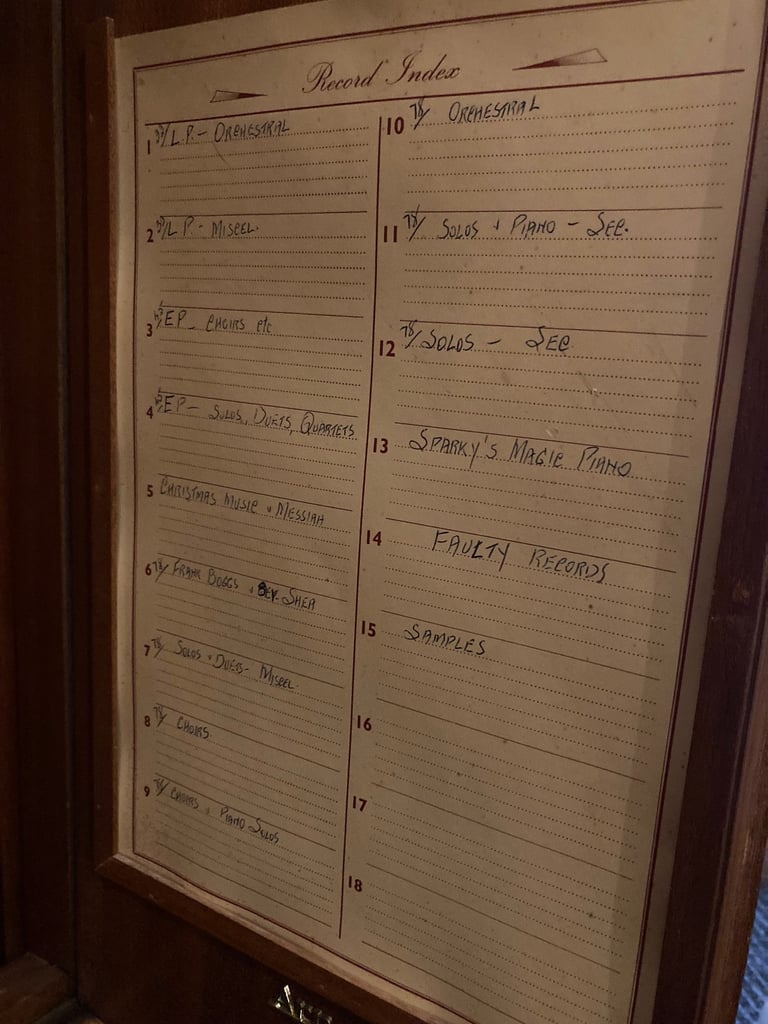 Record Index
1 33/L.P. - ORCHESTRAL
2 33/L.P. - MISCEL.
3 45/EP - CHOIRS etc
4 45/EP - SOLOS, DUETS, QUARTETS
5 CHRISTMAS MUSIC + MESSIAH
6 78/ FRANK BOGGS + BEV. SHEA
7 78/ SOLOS + DUETS - MISCEL.
8 78/ CHOIRS.
9 78/ CHOIRS + PIANO SOLOS
10 78/ ORCHESTRAL
11 78/ SOLOS + PIANO - SEC.
12 78/ SOLOS - SEC
13 SPARKY'S MAGIC PIANO
14 FAULTY RECORDS
15 SAMPLES
16
17
18